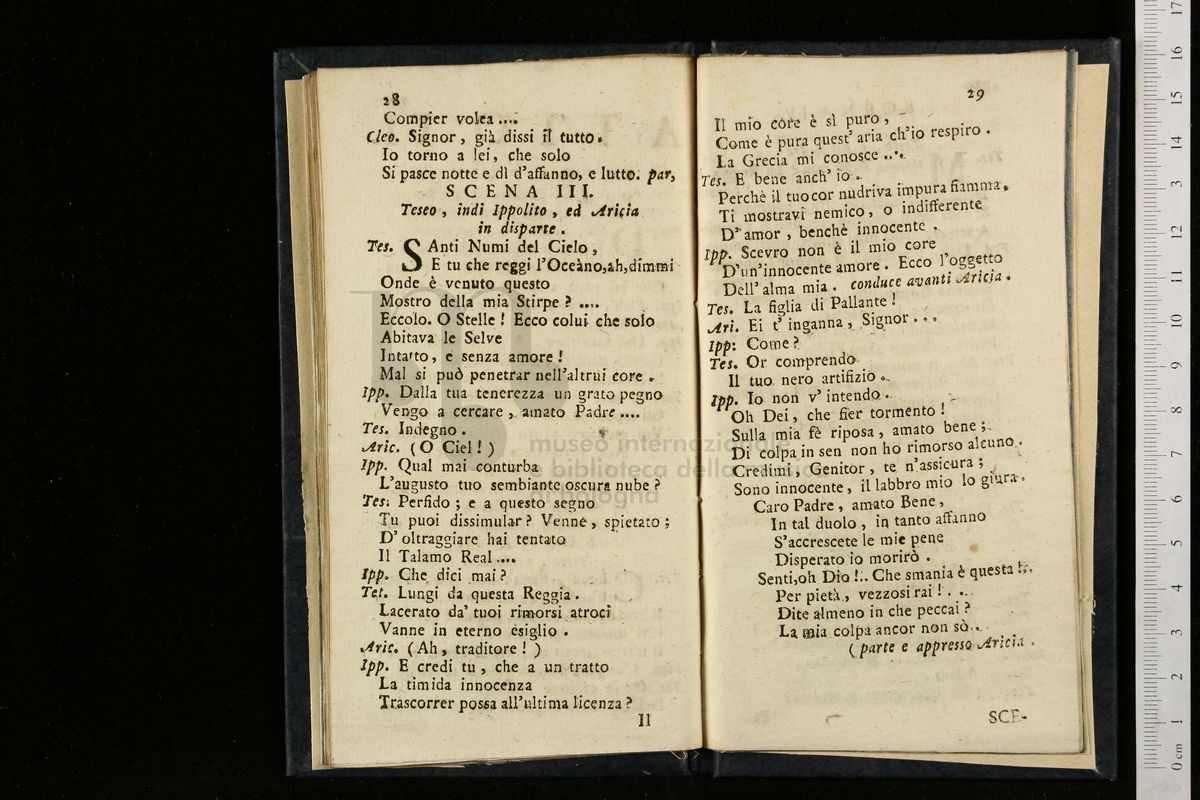 28
Compier volea ....
Cleo. Signor, già dissi il tutto.
Io torno a lei, che solo
Si pasce notte e dì d'affanno, e lutto. par,
SCENA III.
Teseo, indi Ippolito, ed Aricia
in disparte.
Tes. SAnti Numi del Cielo,
E tu che reggi l'Oceàno, ah, dimmi
Onde è venuto questo
Mostro della mia Stirpe? ....
Eccolo. O Stelle! Ecco colui che solo
Abitava le Selve
Intatto, e senza amore!
Mal si può penetrar nell'altrui core.
Ipp. Dalla tua tenerezza un grato pegno
Vengo a cercare, amato Padre ....
Tes. Indegno.
Aric. (O Ciel!)
Ipp. Qual mai conturba
L'augusto tuo sembiante oscura nube?
Tes: Perfido; e a questo segno
Tu puoi dissimular? Venne, spietato;
D'oltraggiare hai tentato
Il Talamo Real ....
Ipp. Che dici mai?
Tet. Lungi da questa Reggia.
Lacerato da' tuoi rimorsi atroci
Vanne in eterno esiglio.
Aric. (Ah, traditore!)
Ipp. E credi tu, che a un tratto
La timida innocenza
Trascorrer possa all'ultima licenza?
Il
29
Il mio core è sì puro,
Come è pura quest' aria ch'io respiro.
La Grecia mi conosce ....
Tes. E bene anch' io.
Perchè il tuo cor nudriva impura fiamma,
Ti mostravi nemico, o indifferente
D'amor, benchè innocente.
Ipp. Scevro non è il mio core
D'un'innocente amore. Ecco l'oggetto
Dell'alma mia. conduce avanti Aricia.
Tes. La figlia di Pallante!
Ari. Ei t'inganna, Signor...
Ipp: Come?
Tes. Or comprendo
Il tuo nero artifizio.
Ipp. Io non v'intendo.
Oh Dei, che fier tormento!
Sulla mia fè riposa, amato bene;
Di colpa in sen non ho rimorso alcuno.
Credimi, Genitor, te n'assicura;
Sono innocente, il labbro mio lo giura.
Caro Padre, amato Bene,
In tal duolo, in tanto affanno
S'accrescete le mie pene
Disperato io morirò.
Senti, oh Dio!.. Che smania è questa!..
Per pietà, vezzosi rai!...
Dite almeno in che peccai?
La mia colpa ancor non sò..
(parte e appresso Aricia.
SCE-
museo internazionale
e biblioteca della musica
di bologna
0 cm 1 2 3 4 5 6 7 8 9 10 11 12 13 14 15 16 17